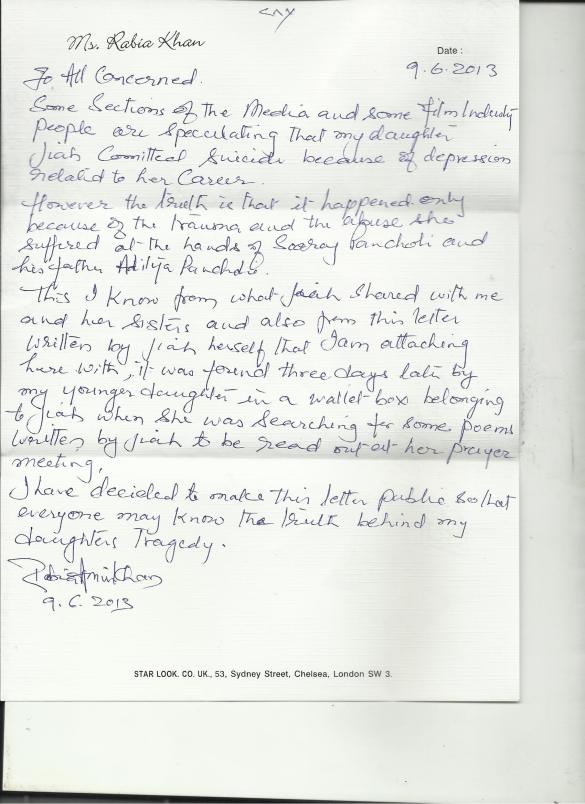 Ms. Rabia Khan
Date :
9.6.2013
To All Concerned.
Some Sections of the Media and some film Industry
people are speculating that my daughter
Jiah Committed Suicide because of depression
related to her Career.
However the truth is that it happened only
because of the trauma and the abuse she
suffered at the hands of Sooraj Pancholi and
his father Aditya Pancholi.
This I know from what Jiah shared with me
and her sisters and also from this letter
written by Jiah herself that I am attaching
here with, it was found three days late by
my younger daughter in a wallet-box belonging
to Jiah when she was searching for some poems
written by Jiah to be read out at her prayer
meeting,
I have decided to make this letter public so that
everyone may know the truth behind my
daughters Tragedy.
Rabia Amin Khan
9.6.2013
STAR LOOK. CO. UK., 53, Sydney Street, Chelsea, London SW 3.